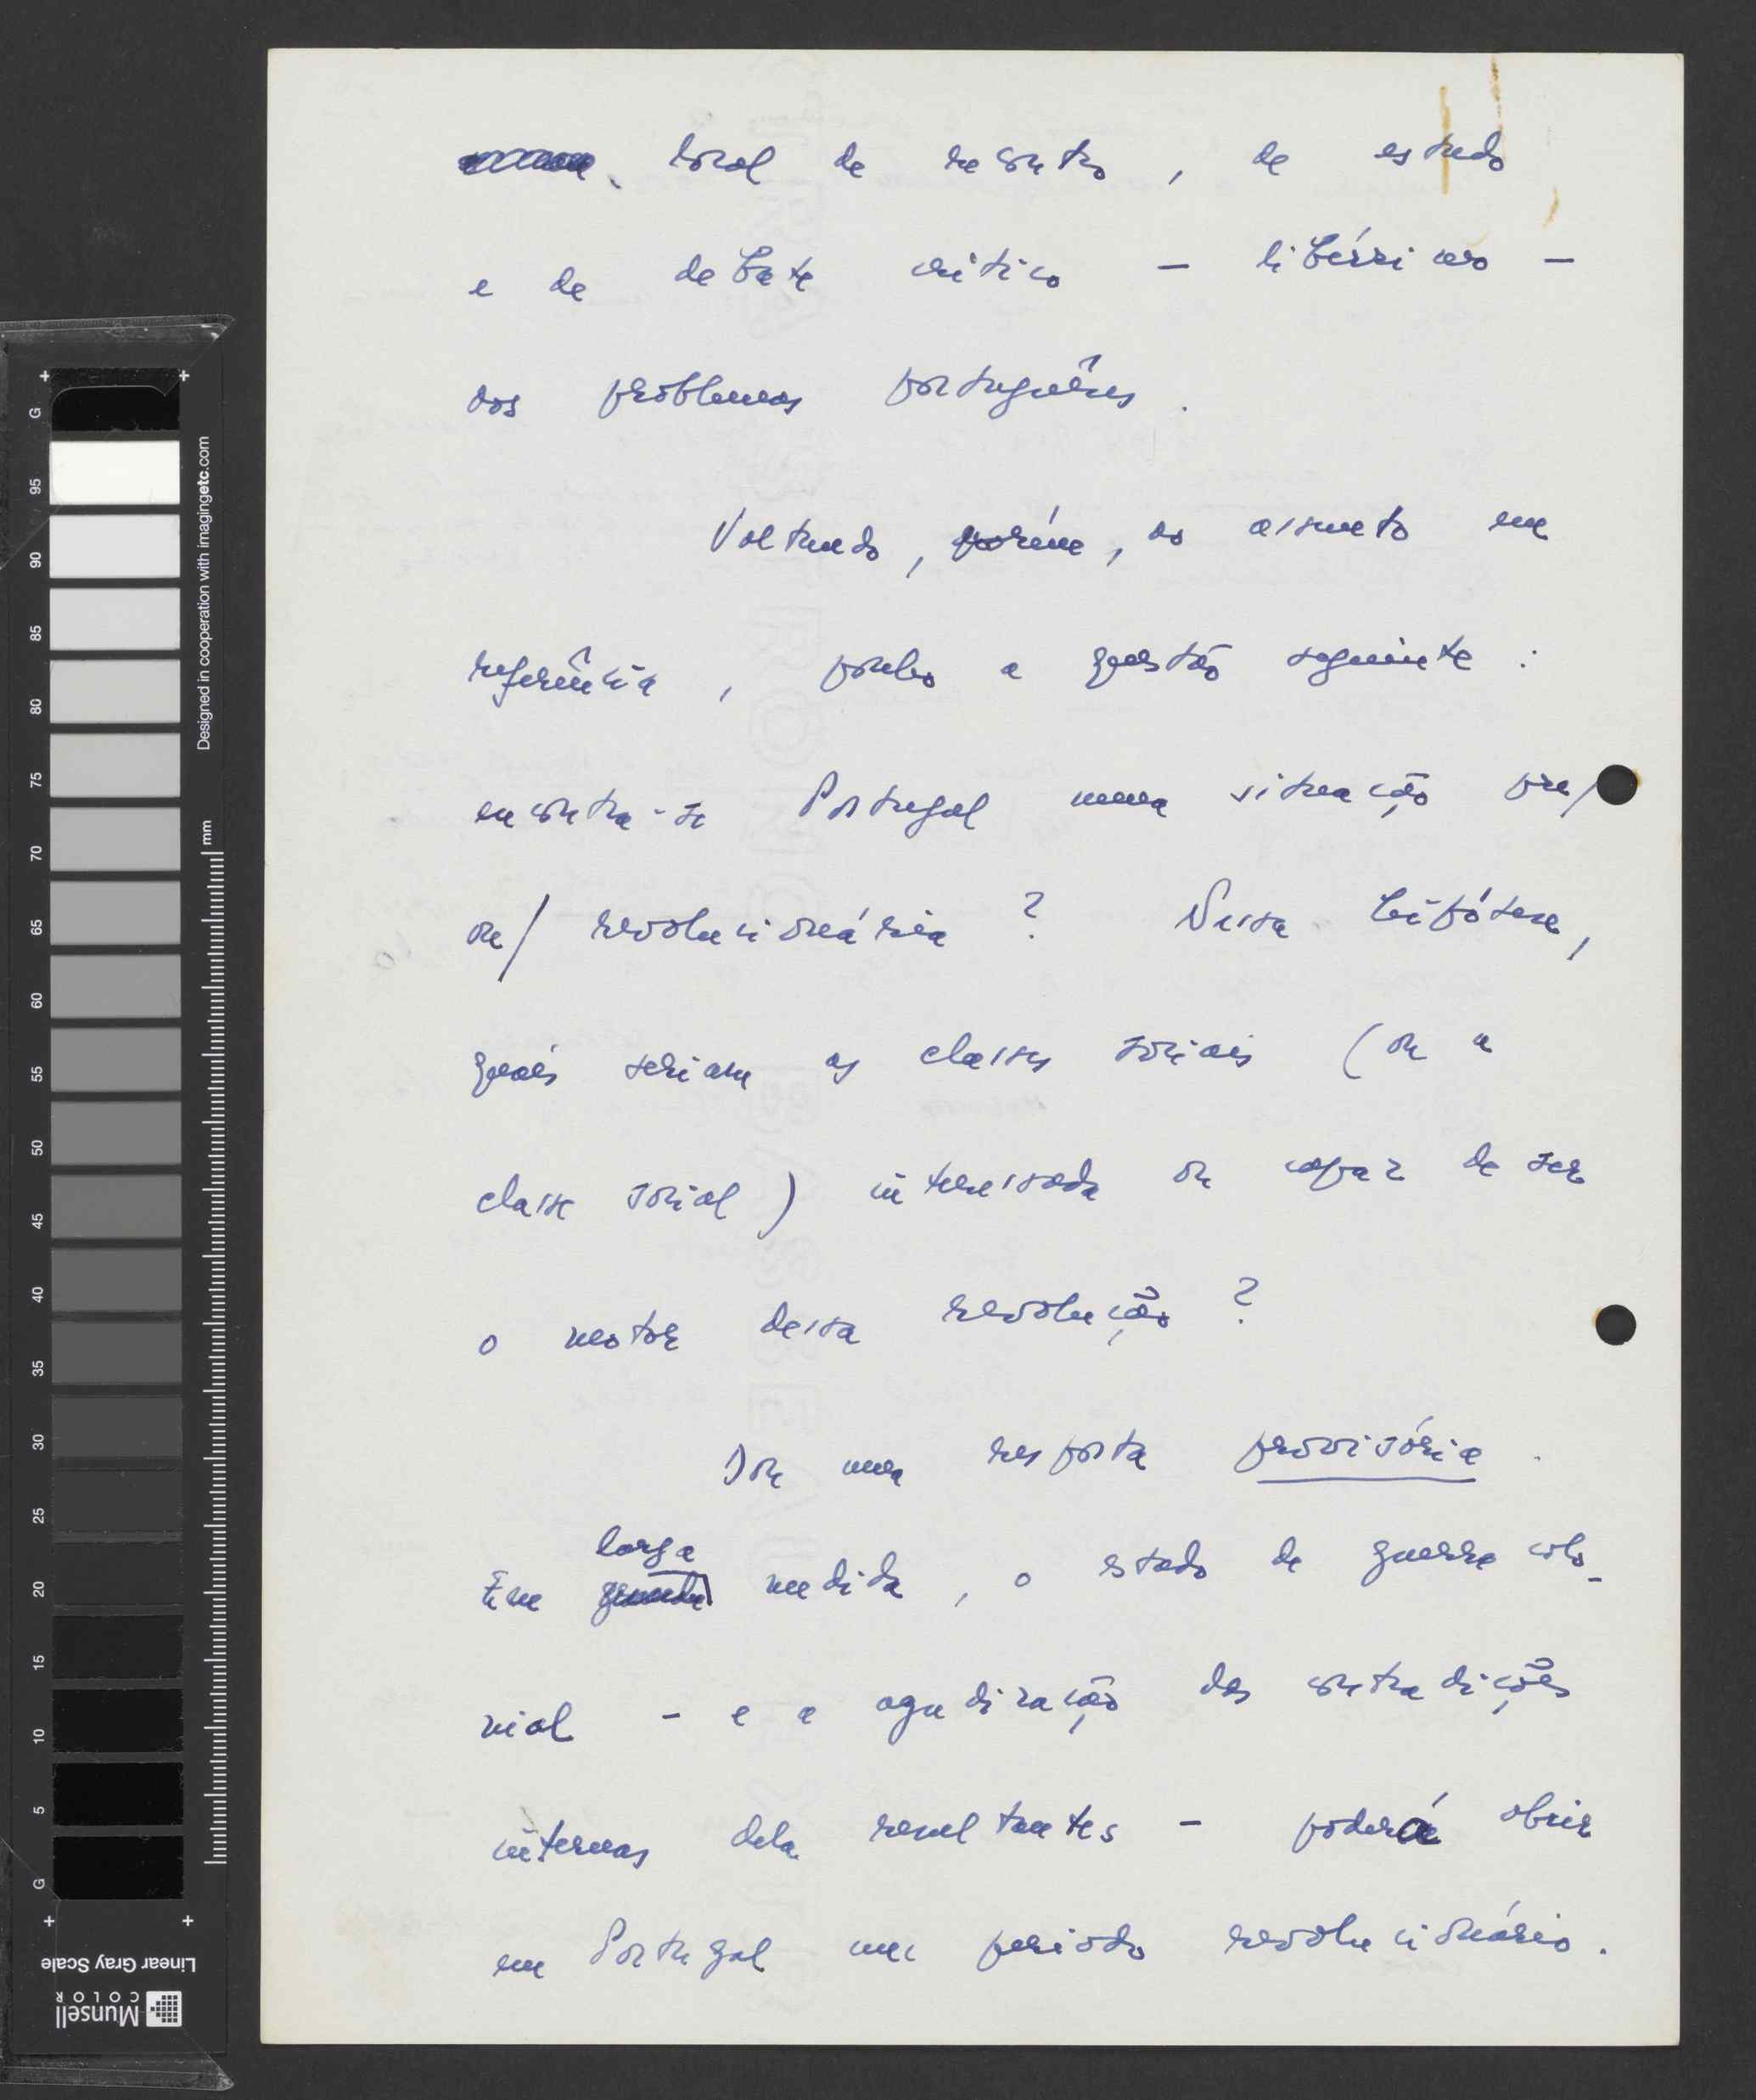 local de encontro, de estudo
e de debate crítico — libérrimo —
dos problemas portuguêses.
Voltando, porém, ao assunto em
referência, ponho a questão seguinte :
encontra-se Portugal numa situação pre/
ou/ revolucionária ? Nessa hipótese,
quais seriam as classes sociais (ou a
classe social) interessada ou capaz de ser
o motor dessa revolução ?
Dou uma resposta provisória.
larga
Em grande medida, o estado de guerra colo-
nial - e a agudização das contradições
internas dela resultantes - poderá abrir
em Portugal um periodo revolucionário.
G
95
90
85
80
75
70
65
60
55
50
45
40
35
30
25
20
15
10
5
G
Designed in cooperation with imagingetc.com
mm
Linear Gray Scale
Munsell
COLOR